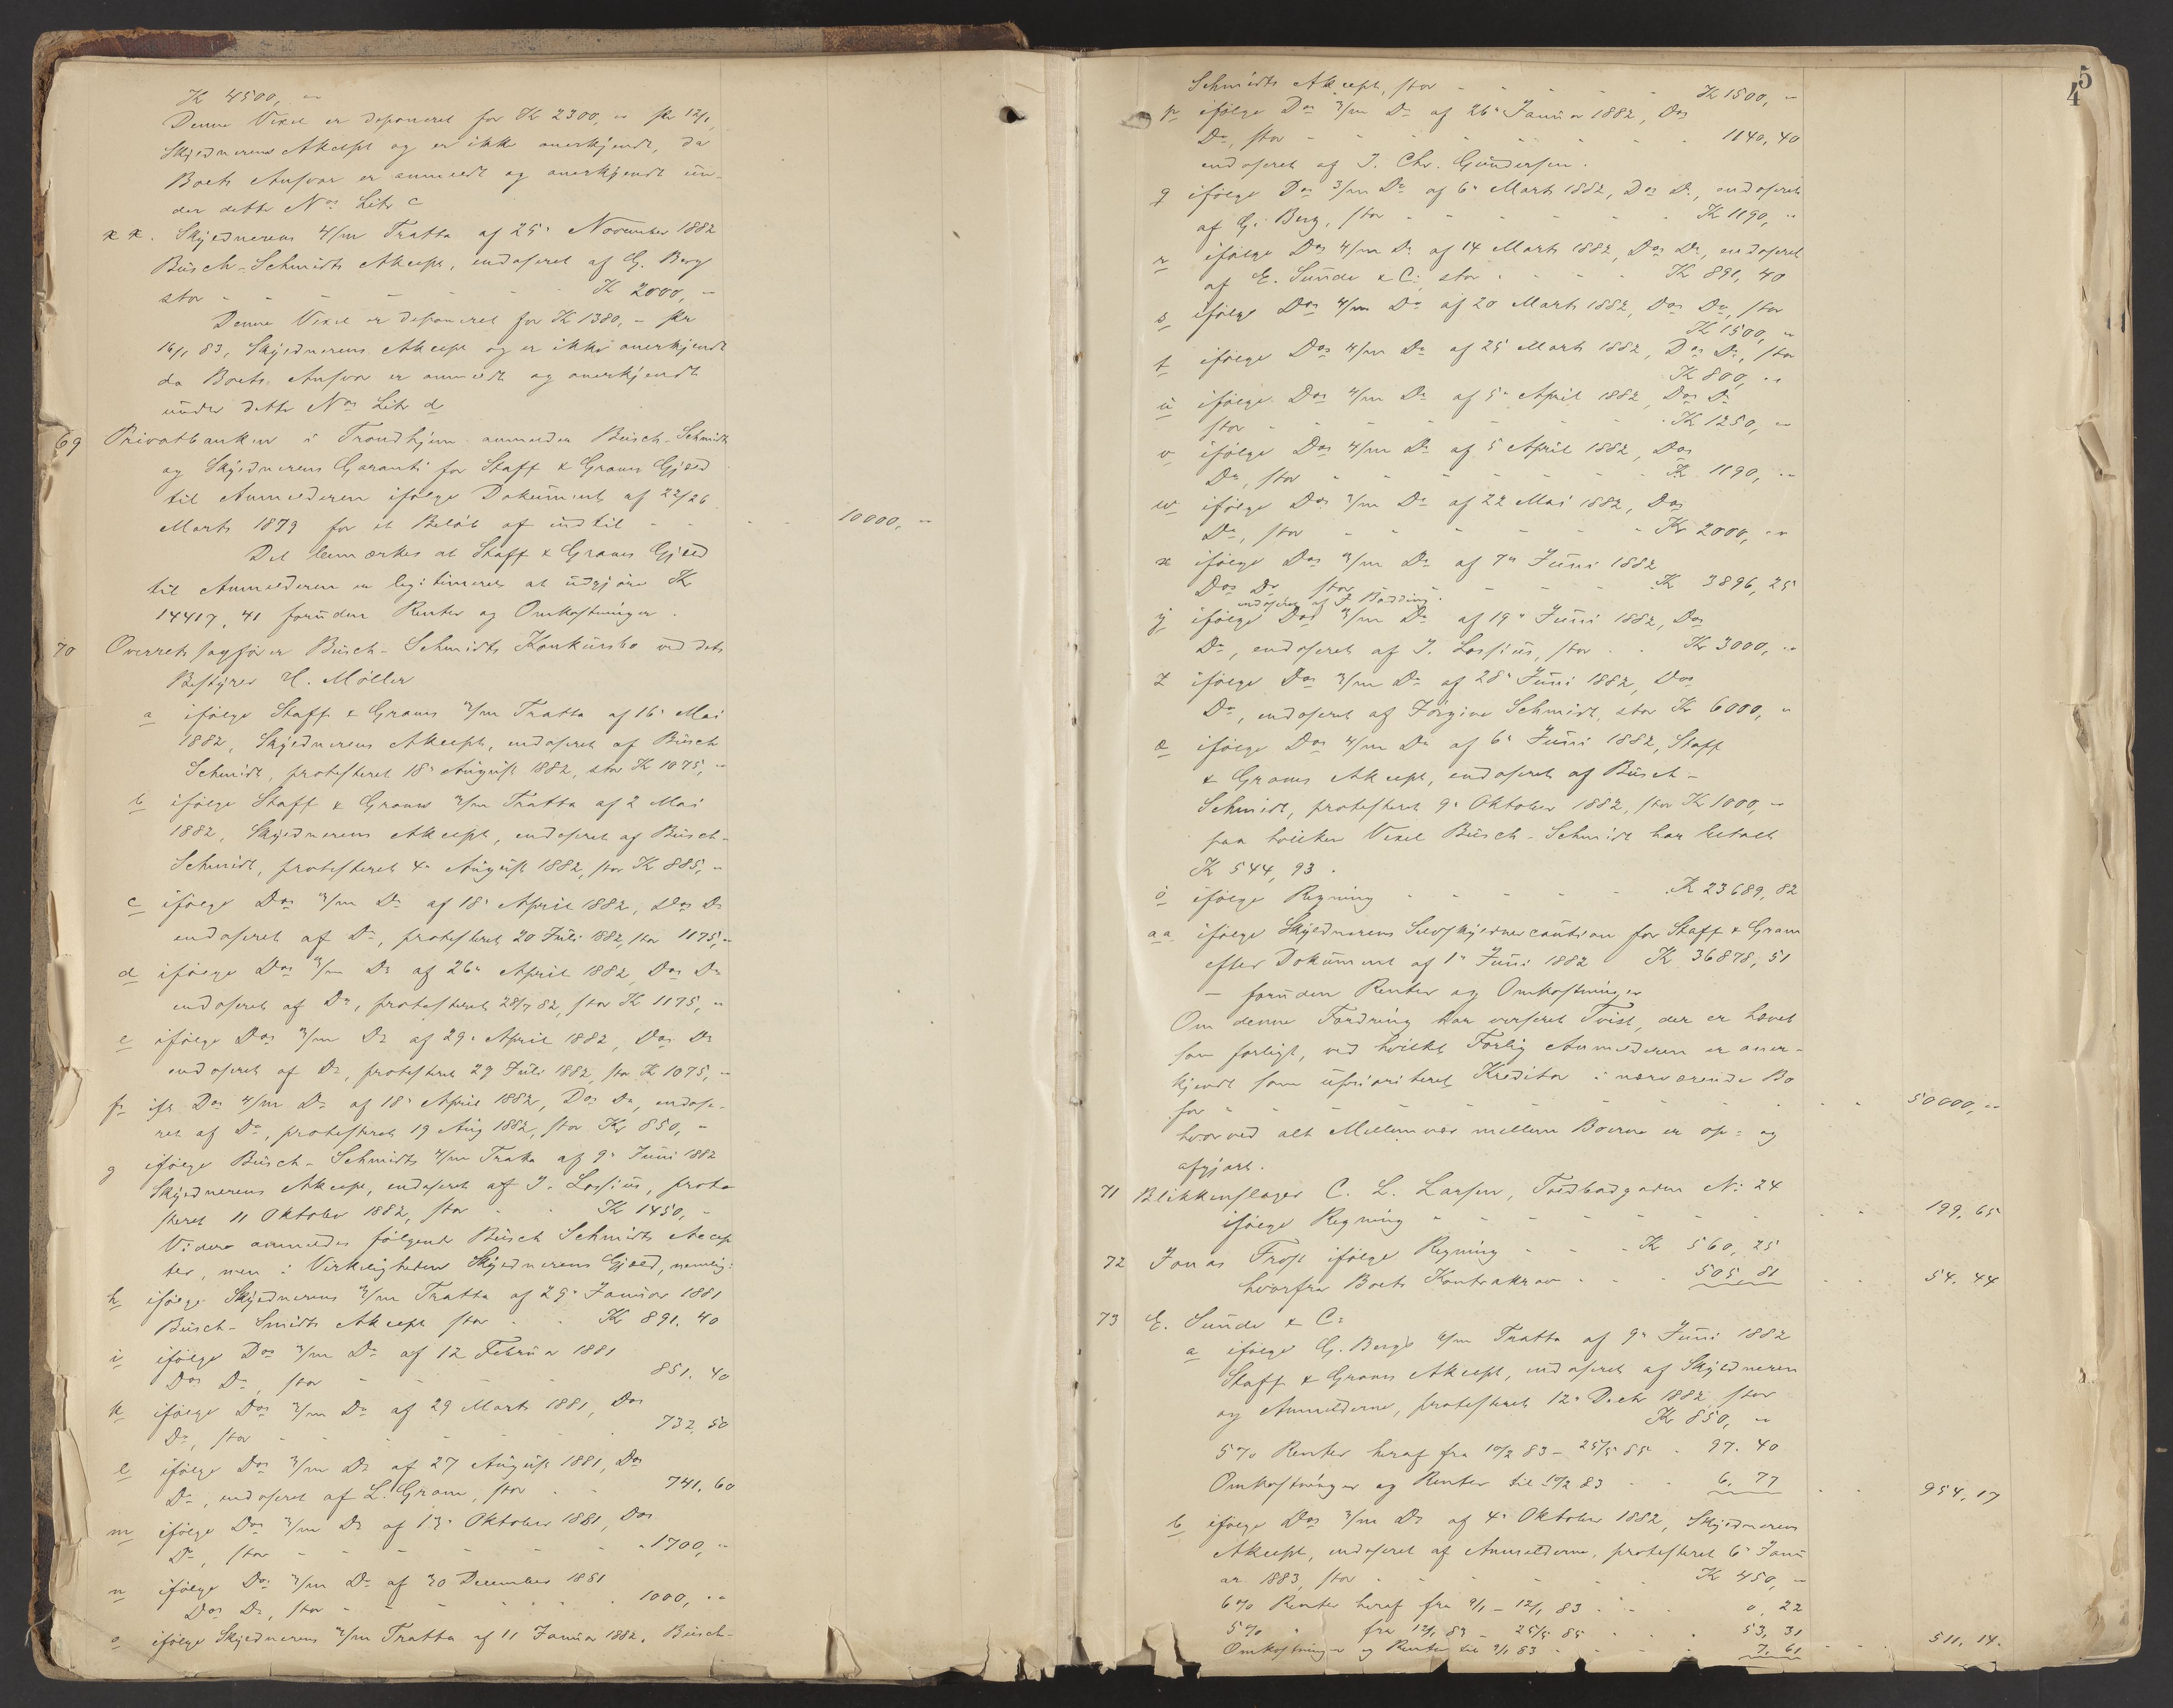 K 4500, "
Denne Vexel er deponeret for K 2300, " pr 12/1,
Skyldnerens Akcept og er ikke anerkjendt, da
Boets Ansvar er anmeldt og anerkjendt un-
der dette No Litr c
x x. Skyldnerens 4/m Tratta af 25de November 1882
Büsch-Schmidts Akcept, endoseret af G. Berg
stor - - - - K 2000, "
Denne Vexel er deponeret for K 1380, - pr
16/1 83, Skyldnerens Akcept og er ikke anerkjendt
da Boets Ansvar er anmeldt og anerkjendt
under dette No Litr d
69 Privatbanken i Trondhjem anmelder Büsch-Schmidt
og Skyldnerens Garanti for Staff & Grams Gjæld
til Anmelderen ifölge Dokument af 22/26
Marts 1879 for et Belöb af indtil - - - - 10000, "
Det bemærkes at Staff & Grams Gjæld
til Anmelderen er legitimeret at udgjöre K
14417, 41 foruden Renter og Omkostninger.
70 Overretssagförer Büsch-Schmidts Konkursbo ved dets
Bestyrer H. Möller
a ifölge Staff & Grams 3/m Tratta af 16de Mai
1882, Skyldnerens Akcept, endoseret af Büsch
Schmidt, protesteret 18de August 1882, stor K 1075, "
b ifölge Staff & Grams 3/m Tratta af 2 Mai
1882, Skyldnerens Akcept, endoseret af Büsch-
Schmidt, protesteret 4de August 1882, stor K 885, "
c ifölge Dos 3/m Do af 18de April 1882, Dos Do
endoseret af Do, protesteret 20 Juli 1882, stor 1175, "
d ifölge Dos 3/m Do af 26de April 1882, Dos Do
endoseret af Do, protesteret 28/7 82, stor K 1175, "
e ifölge Dos 3/m Do af 29de April 1882, Dos Do
endoseret af Do, protesteret 29 Juli 1882, stor K 1075, "
f ifl Dos 4/m Do af 18de April 1882, Dos Do, endose-
ret af Do, protesteret 19 Aug 1882, stor Kr 850, "
g ifölge Büsch-Schmidts 4/m Tratta af 9de Juni 1882
Skyldnerens Akcept, endoseret af J. Lossius, prote
steret 11 Oktober 1882, stor - - K 1450, "
Videre anmeldes fölgende Büsch Schmidts Accep
ter, men i Virkeligheden Skyldnerens Gjæld, nemlig:
h ifölge Skyldnerens 3/m Tratta af 29de Januar 1881
Büsch-Smidts Akcept stor - - Kr 891. 40
i ifölge Dos 3/m Do af 12 Februar 1881
Dos Do, stor - - - - 851. 40
k ifölge Dos 3/m Do af 29 Marts 1881, Dos
Do, stor - - - - - - 732, 50
l ifölge Dos 3/m Do af 27 August 1881, Dos
Do, endoseret af L. Gram, stor - - 741. 60
m ifölge Dos 3/m Do af 13de Oktober 1881, Dos
Do, stor - - - - - - 1700, "
n ifölge Dos 3/m Do af 30 December 1881
Dos Do, stor - - - - - 1000, "
o ifölge Skyldnerens 3/m Tratta af 11 Januar 1882, Büsch-
5
4
Schmidts Akcept, stor - - - - K 1500, "
p ifölge Dos 3/m Do af 26de Januar 1882, Dos
Do, stor - - - - - - 1140, 40
endoseret af J. Chr. Gundersen.
q ifölge Dos 3/m Do af 6de Marts 1882, Dos Do, endoseret
af G. Berg, stor - - - - - K 1190, "
r ifölge Dos 4/m Do af 14 Marts 1882, Dos Do, endoseret
af E. Sunde & Co, stor - - - - K 891, 40
s ifölge Dos 4/m Do af 20 Marts 1882, Dos Do, stor
K 1500, "
t ifölge Dos 4/m Do af 25 Marts 1882, Dos Do, stor
K 800, "
u ifölge Dos 4/m Do af 5de April 1882, Dos Do
stor - - - - - - K 1250, "
v ifölge Dos 4/m Do af 5 April 1882, Dos
Do, stor - - - - - - K 1190, "
w ifölge Dos 3/m Do af 22 Mai 1882, Dos
Do, stor - - - - - - Kr 2000, "
x ifölge Dos 3/m Do af 7de Juni 1882
Dos Do stor - - - - K 3896, 25
endoseret af J. Bödding.
y ifölge Dos 3/m Do af 19de Juni 1882, Dos
Do, endoseret af J. Lossius, stor - - Kr 3000, "
z ifölge Dos 3/m Do af 28de Juni 1882, Dos
Do, endoseret af Jörgine Schmidt, stor Kr 6000, "
æ ifölge Dos 4/m Do af 6de Juni 1882, Staff
& Grams Akcept, endoseret af Büsch-
Schmidt, protesteret 9de Oktober 1882, stor K 1000, "
paa hvilken Vexel Büsch-Schmidt har betalt
K 544, 93.
ö ifölge Regning - - - - - K 23689, 82
aa ifölge Skyldnerens Selvskyldnercaution for Staff & Gram
efter Dokument af 1de Juni 1882 K 36878, 51
- foruden Renter og Omkostninger
Om denne Fordring har verseret Tvist, der er hævet
som forligt, ved hvilket Forlig Anmelderen er aner-
kjendt som uprioriteret Kreditor i nærværende Bo
for - - - - - - - - 50000, "
hvorved alt Mellemvær mellem Boerne er op- og
afgjort.
71 Blikkenslager C. L. Larsen, Toldbodgaden No 24
ifölge Regning - - - - - - 199. 65
72 Jonas Frost ifölge Regning - - - K 560, 25
hvorfra Boets Kontrakrav - - - 505, 81 - - 54. 44
73 E. Sunde & Co
a ifölge G. Bergs 6/m Tratta af 9de Juni 1882
Staff & Grams Akcept, endoseret af Skyldneren
og Anmelderne, protesteret 12de Decbr 1882, stor
Kr 850, "
5% Renter heraf fra 10/2 83 - 25/5 85 - 97. 40
Omkostninger og Renter til 10/2 83 - - 6. 77 - - 954. 17
b ifölge Dos 3/m Do af 4de Oktober 1882, Skyldnerens
Akcept, endoseret af Anmelderne, protesteret 6de Janu
ar 1883, stor - - - - - Kr 450, "
6% Renter heraf fra 9/1 - 12/1 83 - - 0, 22
5% " fra 12/1 83 - 25/5 85 - - - 53, 31
Omkostninger og Renter til 9/1 83 - - - 7. 61 - - 511. 14.